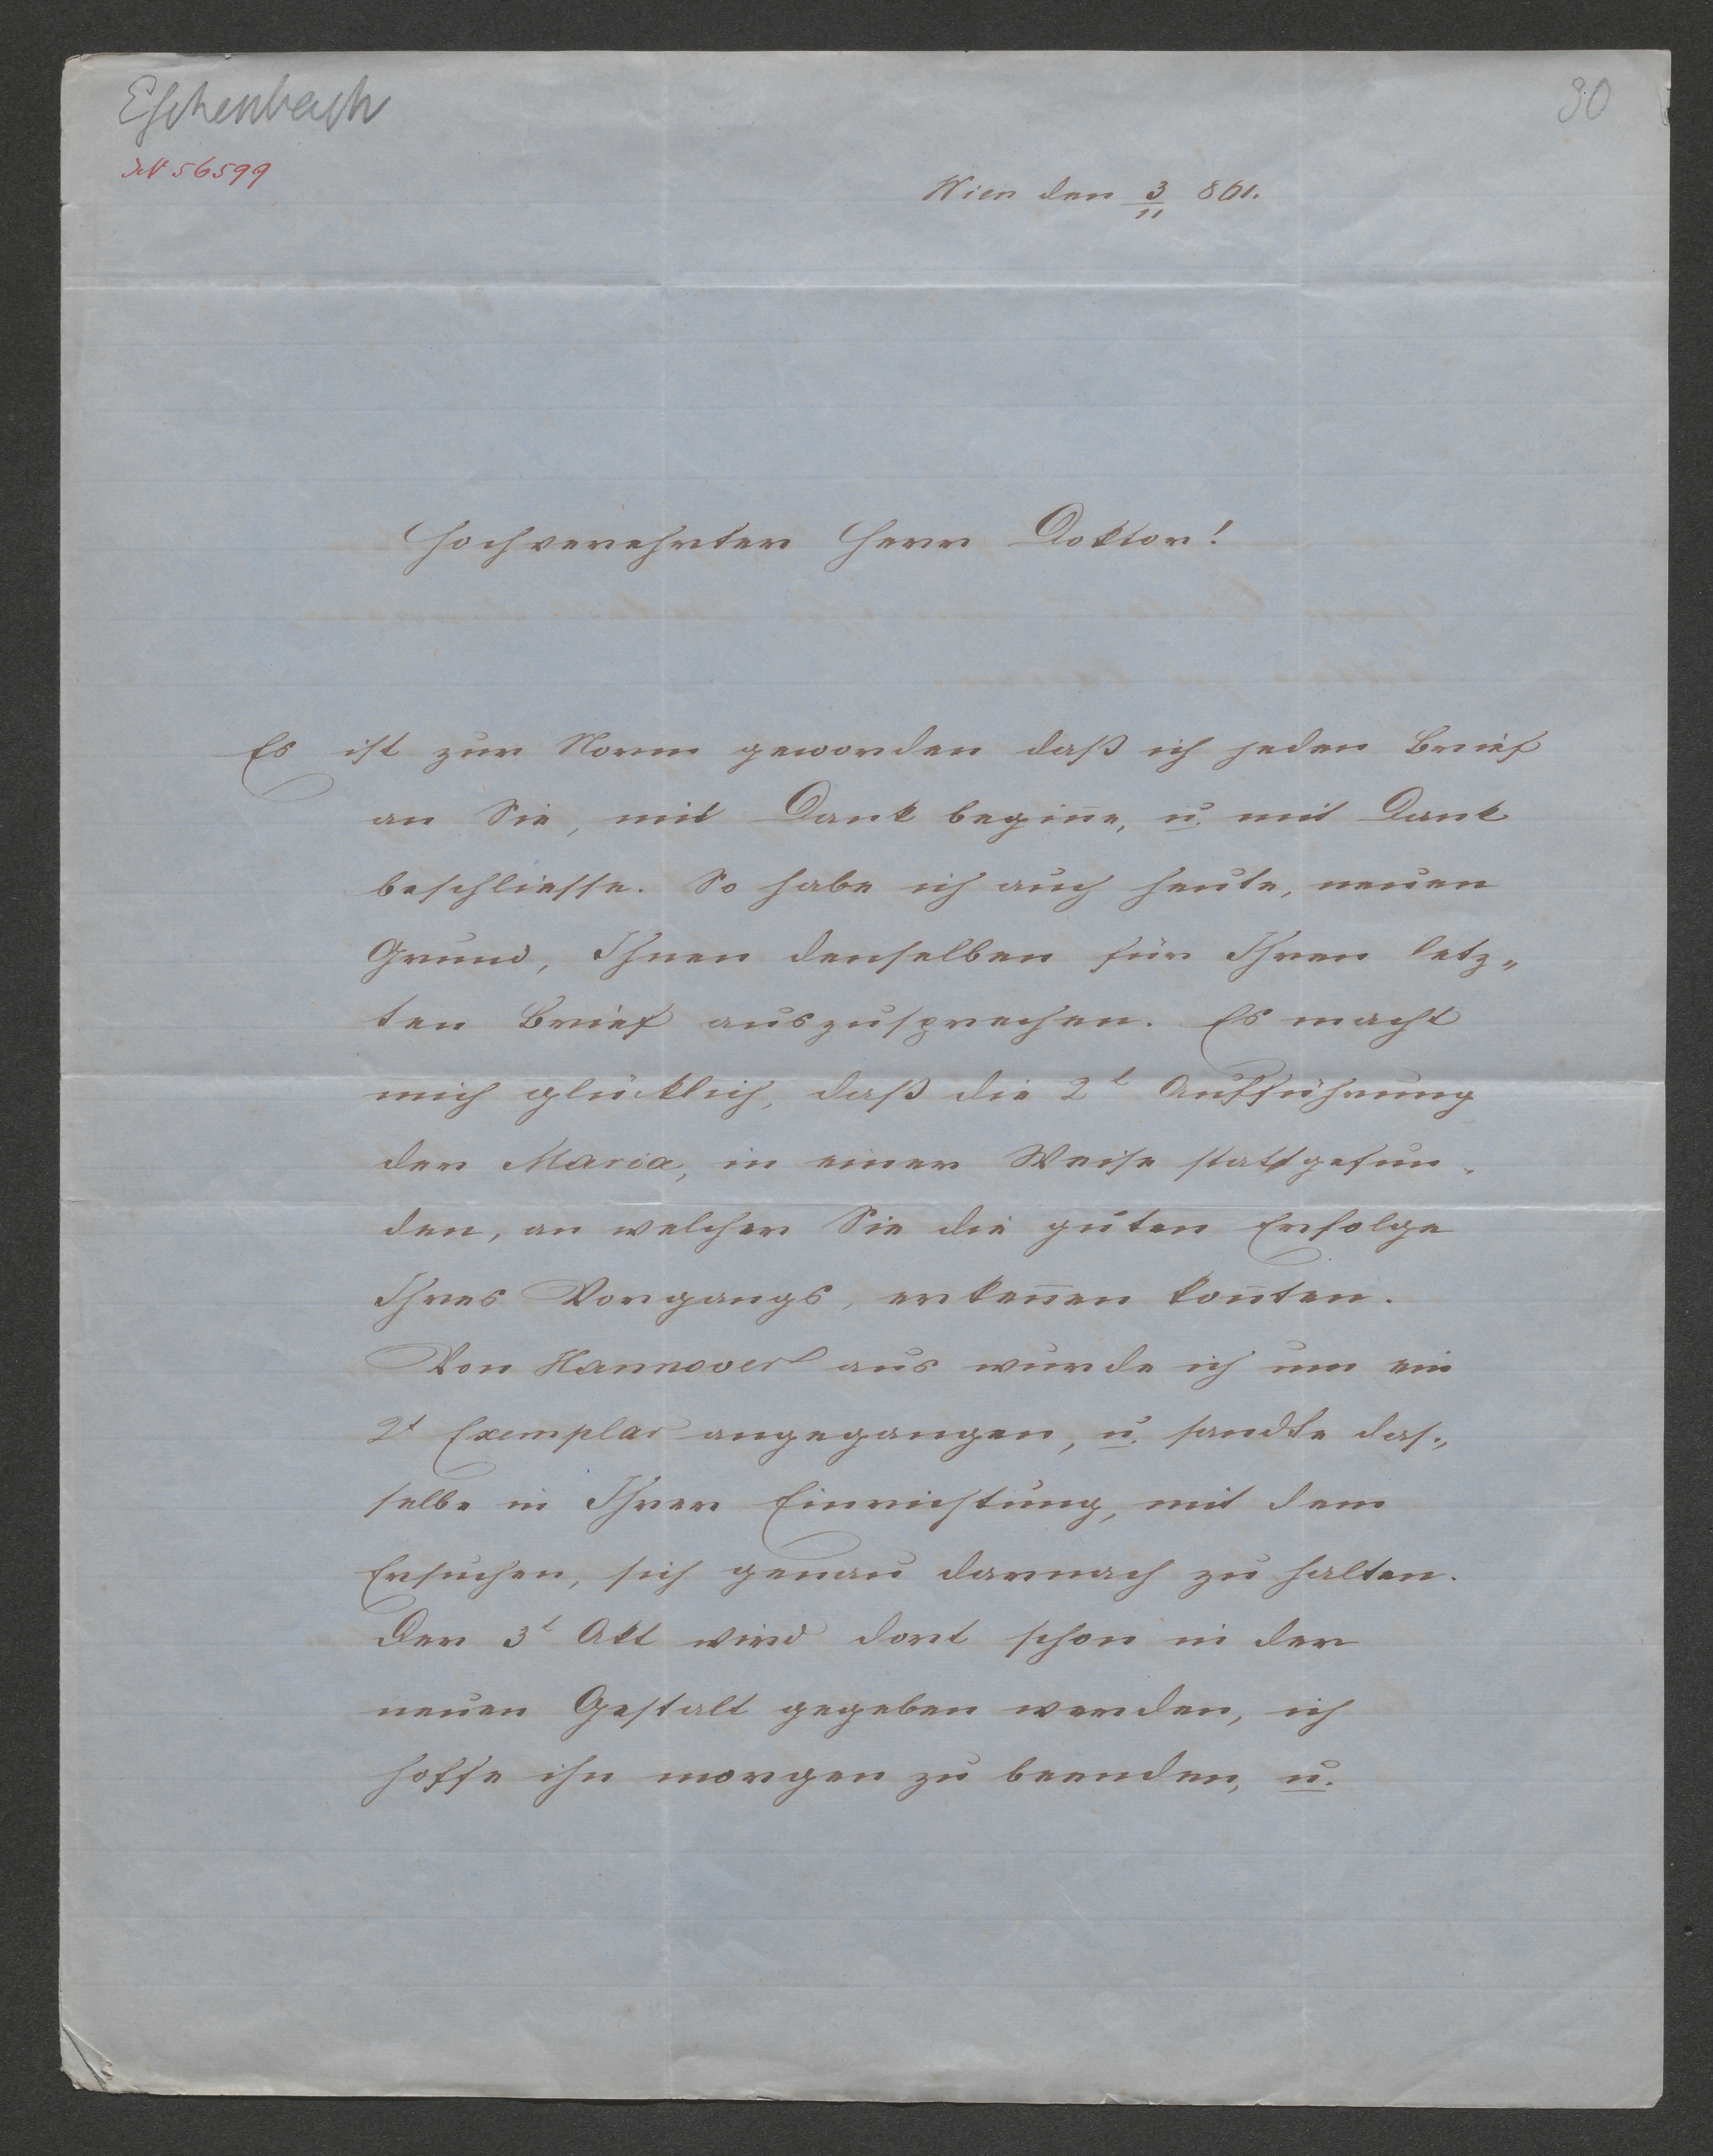 Eschenbach
30
JN 56599
Wien den 3/11 861.
Hochverehrter Herr Doktor!
Es ist zur Norm geworden daß ich jeden Brief
an Sie, mit Dank begin̄e, u. mit Dank
beschliesse. So habe ich auch heute, neuen
Grund, Ihnen denselben für Ihren letz„
ten Brief auszusprechen. Es macht
mich glücklich, daß die 2t Aufführung
der Maria, in einer Weise stattgefun„
den, an welcher Sie die guten Erfolge
Ihres Vorgangs, erken̄en kon̄ten.
Von Hannover aus wurde ich um ein
2t Exemplar angegangen, u. sandte das„
selbe in Ihrer Einrichtung, mit dem
Ersuchen, sich genau darnach zu halten.
Der 3t Akt wird dort schon in der
neuen Gestalt gegeben werden, ich
hoffe ihn morgen zu beenden, u.